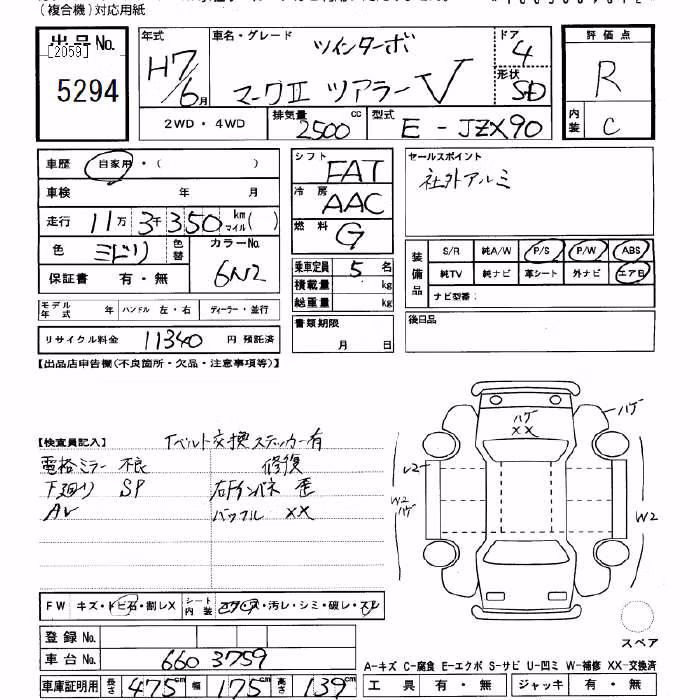 (複合機)対応用紙
出品No.
[2059]
5294
年式
H7/6月
車名・グレード
ツインターボ
マークII ツアラーV
ドア
4
形状
SD
評価点
R
内装
C
2WD・4WD
排気量
2500cc
型式
E-JZX90
車歴 自家用・( )
車検 年 月
走行 11万3千350km マイル( )
色 ミドリ 色替
カラーNo.
6N2
保証書 有・無
モデル年式 年 ハンドル 左・右 ディーラー・並行
リサイクル料金 11340 円 預託済
シフト FAT
冷房 AAC
燃料 G
乗車定員 5 名
積載量 kg
総重量 kg
書類期限
月 日
セールスポイント
社外アルミ
装備品
S/R 純A/W P/S P/W ABS
純TV 純ナビ 革シート 外ナビ エアB
ナビ型番:
後日品
【出品店申告欄(不良箇所・欠品・注意事項等)】
【検査員記入】 Tベルト交換ステッカー有
電格ミラー 不良 修復
下廻り SP 右Fインパネ 歪
AV バックル XX
ハゲ
XX
ハゲ
W2
ハゲ
W2
スペア
FW キズ・トビ石・割レX シート内装 コゲ・ス・汚レ・シミ・破レ・スレ
登録No.
車台No. 660 3759
車庫証明用 長さ 475cm 幅 175cm 高さ 139cm
A-キズ C-腐食 E-エクボ S-サビ U-凹ミ W-補修 XX-交換済
工具 有・無 ジャッキ 有・無